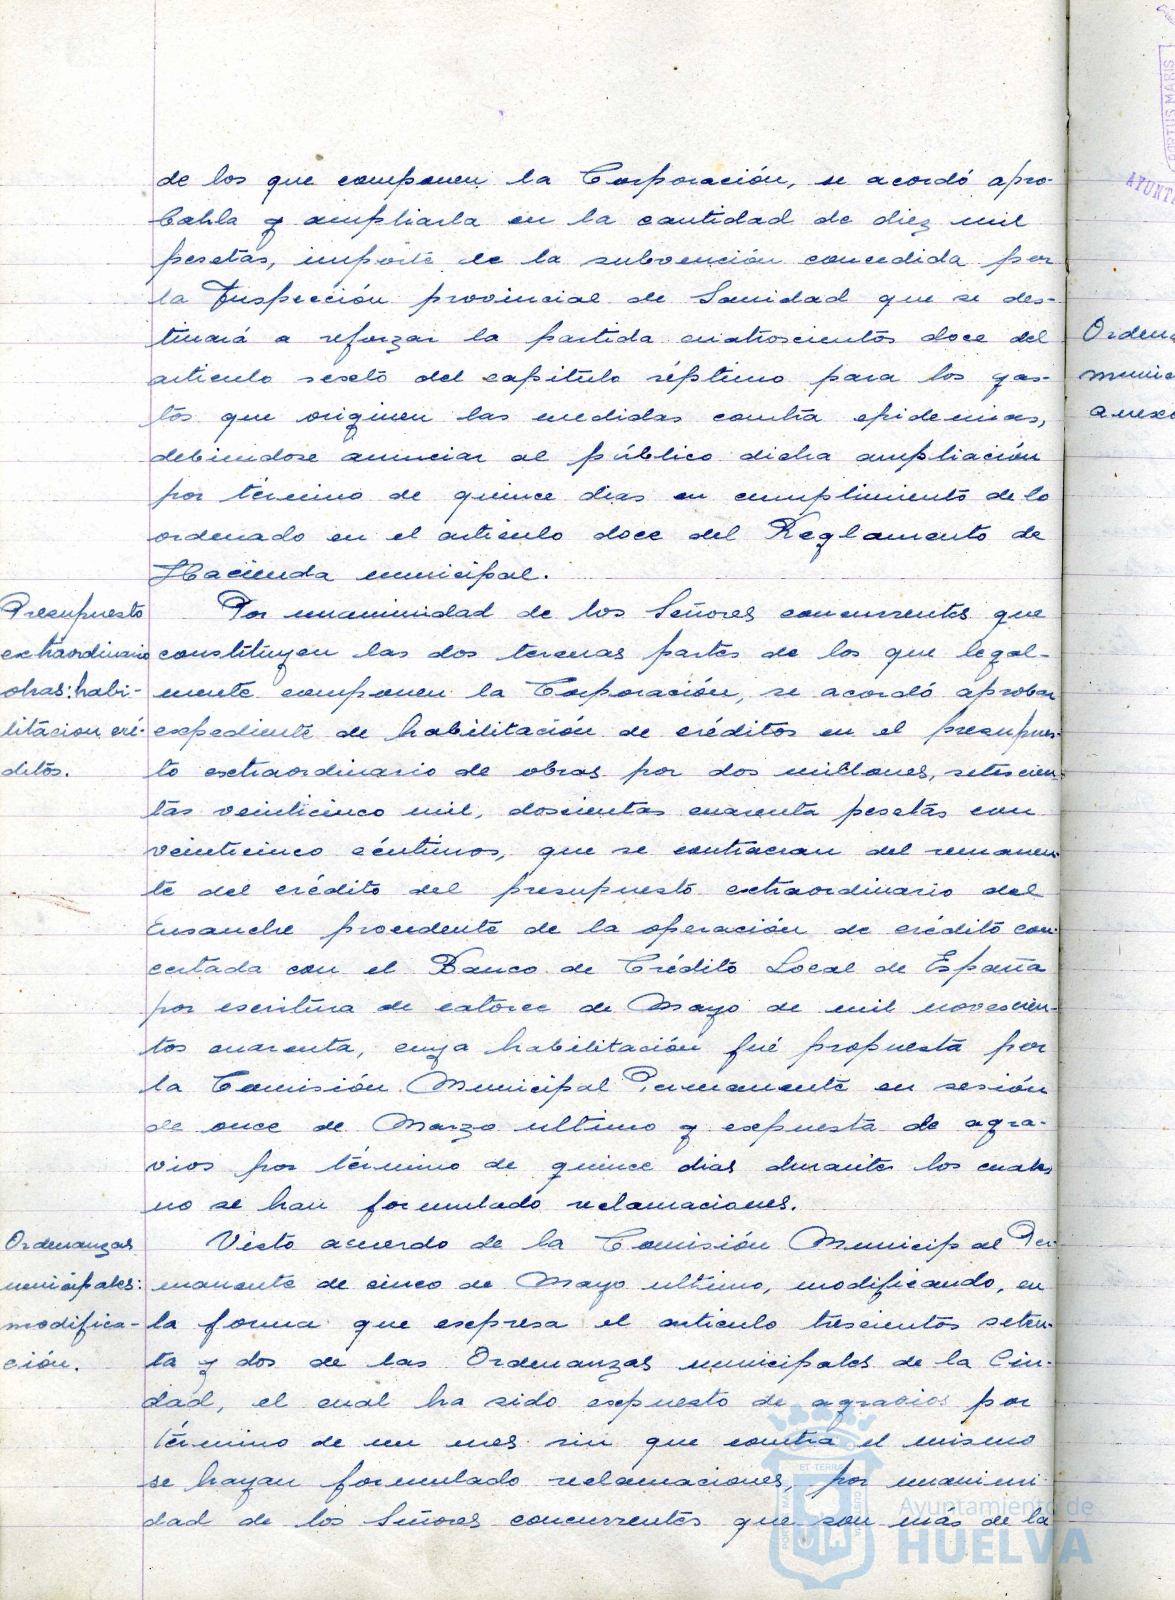 de los que componen la Corporación, se acordó apro-
barla y ampliarla en la cantidad de diez mil
pesetas, importe de la subvención concedida por
la Inspección provincial de Sanidad que se des-
tinará a reforzar la partida cuatroscientos doce del
articulo sexto del capitulo séptimo para los gas-
tos que originen las medidas contra epidemias,
debiendose anunciar al público dicha ampliación
por término de quince dias en cumplimiento de lo
ordenado en el articulo doce del Reglamento de
Hacienda municipal.
Presupuesto
extraordinario
obras: habi-
litacion cré-
ditos.
Por unanimidad de los Señores concurrentes que
constituyen las dos terceras partes de los que legal-
mente componen la Corporación, se acordó aprobar
expediente de habilitación de créditos en el presupues-
to extraordinario de obras por dos millones, setescien-
tas veinticinco mil, doscientas cuarenta pesetas con
veinticinco céntimos, que se contraeran del remanen-
te del crédito del presupuesto extraordinario del
Ensanche procedente de la operación de crédito con-
certada con el Banco de Crédito Local de España
por escritura de catorce de Mayo de mil novescien-
tos cuarenta, cuya habilitación fué propuesta por
la Comisión Municipal Permanente en sesión
de once de Marzo ultimo y expuesta de agra-
vios por término de quince dias durante los cuales
no se han formulado reclamaciones.
Ordenanzas
municipales:
modifica-
ción.
Visto acuerdo de la Comisión Municipal Per-
manente de cinco de Mayo ultimo, modificando, en
la forma que expresa el articulo trescientos seten-
ta y dos de las Ordenanzas municipales de la Ciu-
dad, el cual ha sido expuesto de agravios por
término de un mes sin que contra el mismo
se hayan formulado reclamaciones, por unanimi-
dad de los Señores concurrentes que son más de la
Ayuntamiento de
HUELVA
PORTUS MARIS